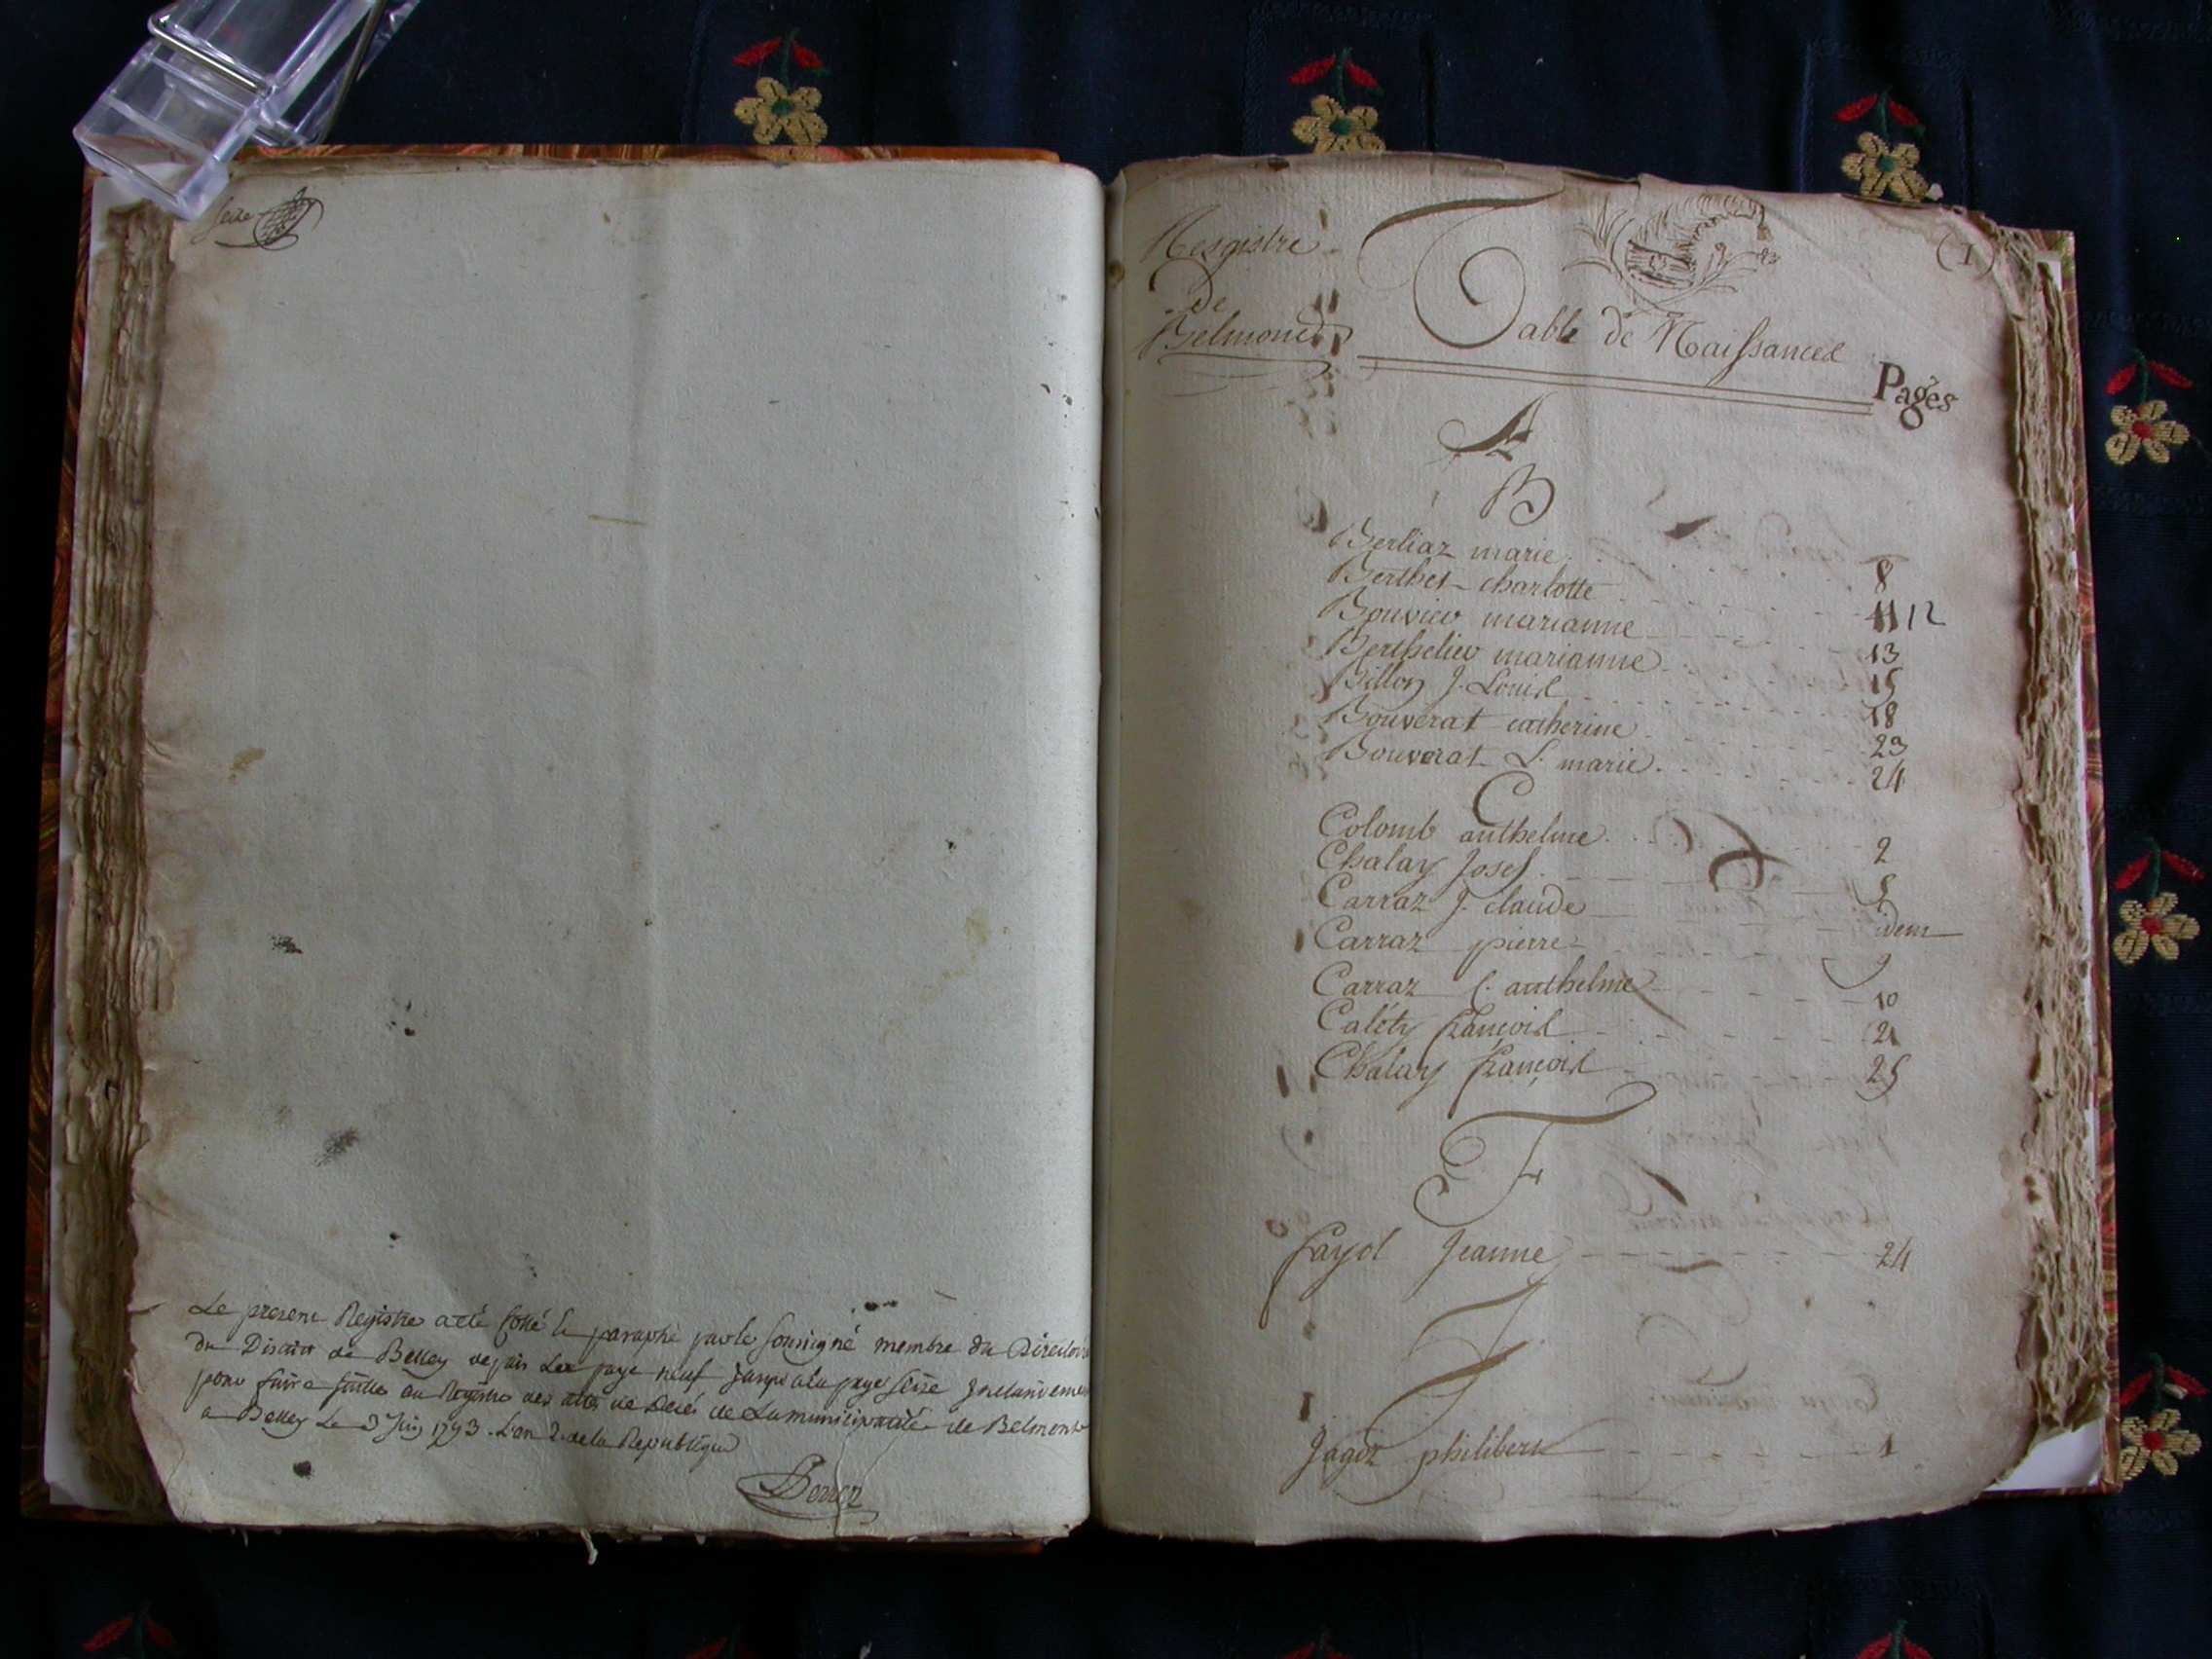 seize
Le present Registre a été Cotté & paraphé par le Soussigné membre du Directoire
du District de Belley depuis La page neuf jusqu'a la page Seize Inclusivement
pour faire suitte au Registre des actes de Decés de La municipalité de Belmont
a Belley Le 3 Juin 1793. L'an 2. de la Republique
Resgistre
de
Belmond
(1)
Table de Naissances
Pages
A
B
Berliaz marie 8
Berthet charlotte 11 12
Bouvier marianne 13
Berthelier marianne 15
Billon J. Louis 18
Bouverat catherine 23
Bouverat L. marie 24
C
Colomb anthelme 2
Chalay Josef
Carraz J. claude idem
Carraz pierre 9
Carraz C. anthelme 10
Caléty françois 21
Chalay françois 25
F
fayol Jeanne 24
J
Jagoz philibert 1